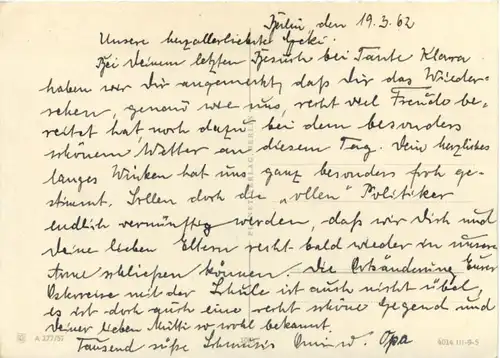 Berlin den 19.3.62
Unsere herzallerliebste
Bei Deinem letzten Besuch bei Tante Klara
haben wir Dir angemerkt, daß Dir das Wieder-
sehen, genau wie uns, recht viel Freude be-
reitet hat, noch dazu bei dem besonders
schönem Wetter an diesem Tag. Dein herzliches
langes Winken hat uns ganz besonders froh ge-
stimmt. Sollen doch die „ollen" Politiker
endlich vernünftig werden, daß wir Dich und
Deine lieben Eltern recht bald wieder in unsere
Arme schließen können. Die Ortsänderung Eurer
mit der Schule ist auch nicht übel,
es ist doch auch eine recht schöne Gegend und
Deiner lieben Mutti so wohl bekannt.
Tausend süße Schmusis Omi u. Opa
A 277/57
6014 III-9-5